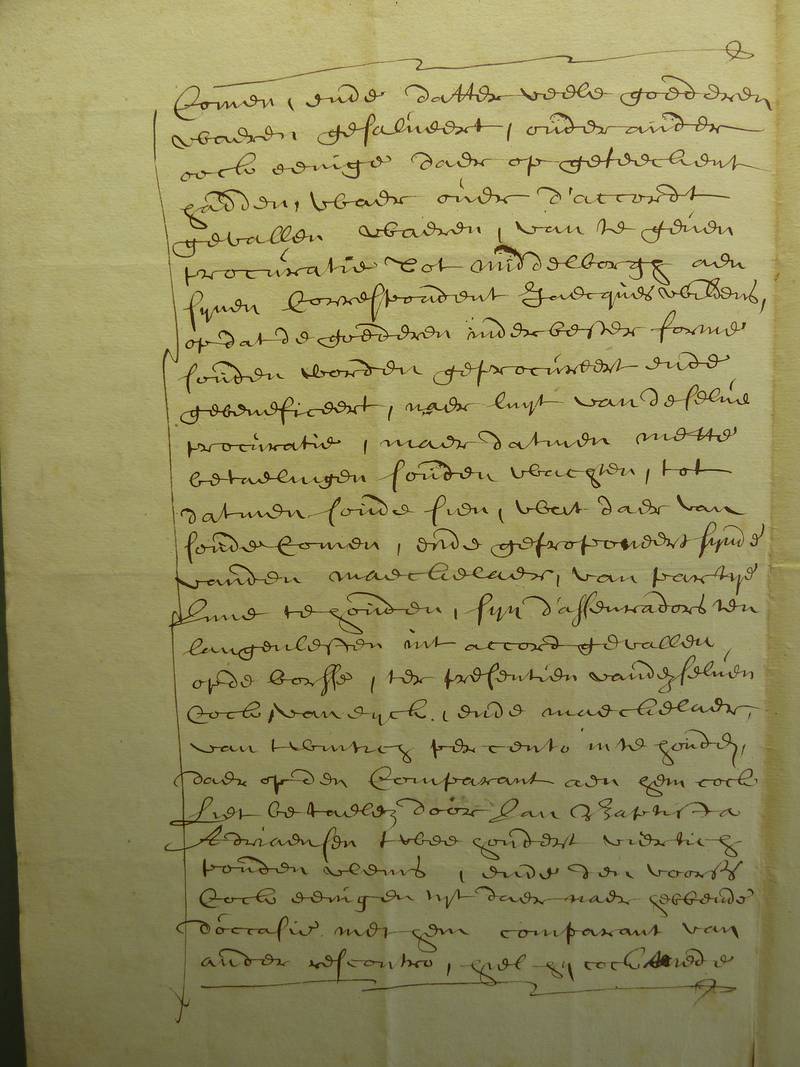 2
Comen, ende datter veele goederen
waeren gesalveert, onder ander
oock eenige daer op geteeckent
hadden, waer over d'accordt
gevallen waeren, van te geven
procuratie tot Middelborgh aen
synen Correspondent Jacques Willens,
op dat de goederen inder bester forme
souden worden geprocureert ende
gebeneficeert, naer luyt van deselve
procuratie, maer datmen mette
betaelingen souden wachten, tot
datmen soude sien, wat daer van
soude Comen, ende geproponeert synde
vanden maeckelaer, van partye
inne te houden, syn d'asseuradors ten
langenlesten int accord gevallen
opde borsse, ter presentien vande selven
Cock, van eyck, ende maeckelaer,
van twintich per cento in te houden,
daer op den Comparant aen hem cock
liet betaelen door Jan Baptista
Adriaensen twee hondert viertich
ponden vleems, ende den voors
Cock eenigen tyt daer naer hebbende
d'occasie met hem comparant van
ander rescontro, hiel hy cock mede